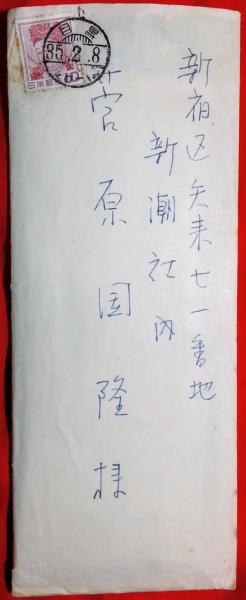 新宿区矢来七一番地
新潮社内
菅原国隆様
目黒
35.2.8
日本郵便